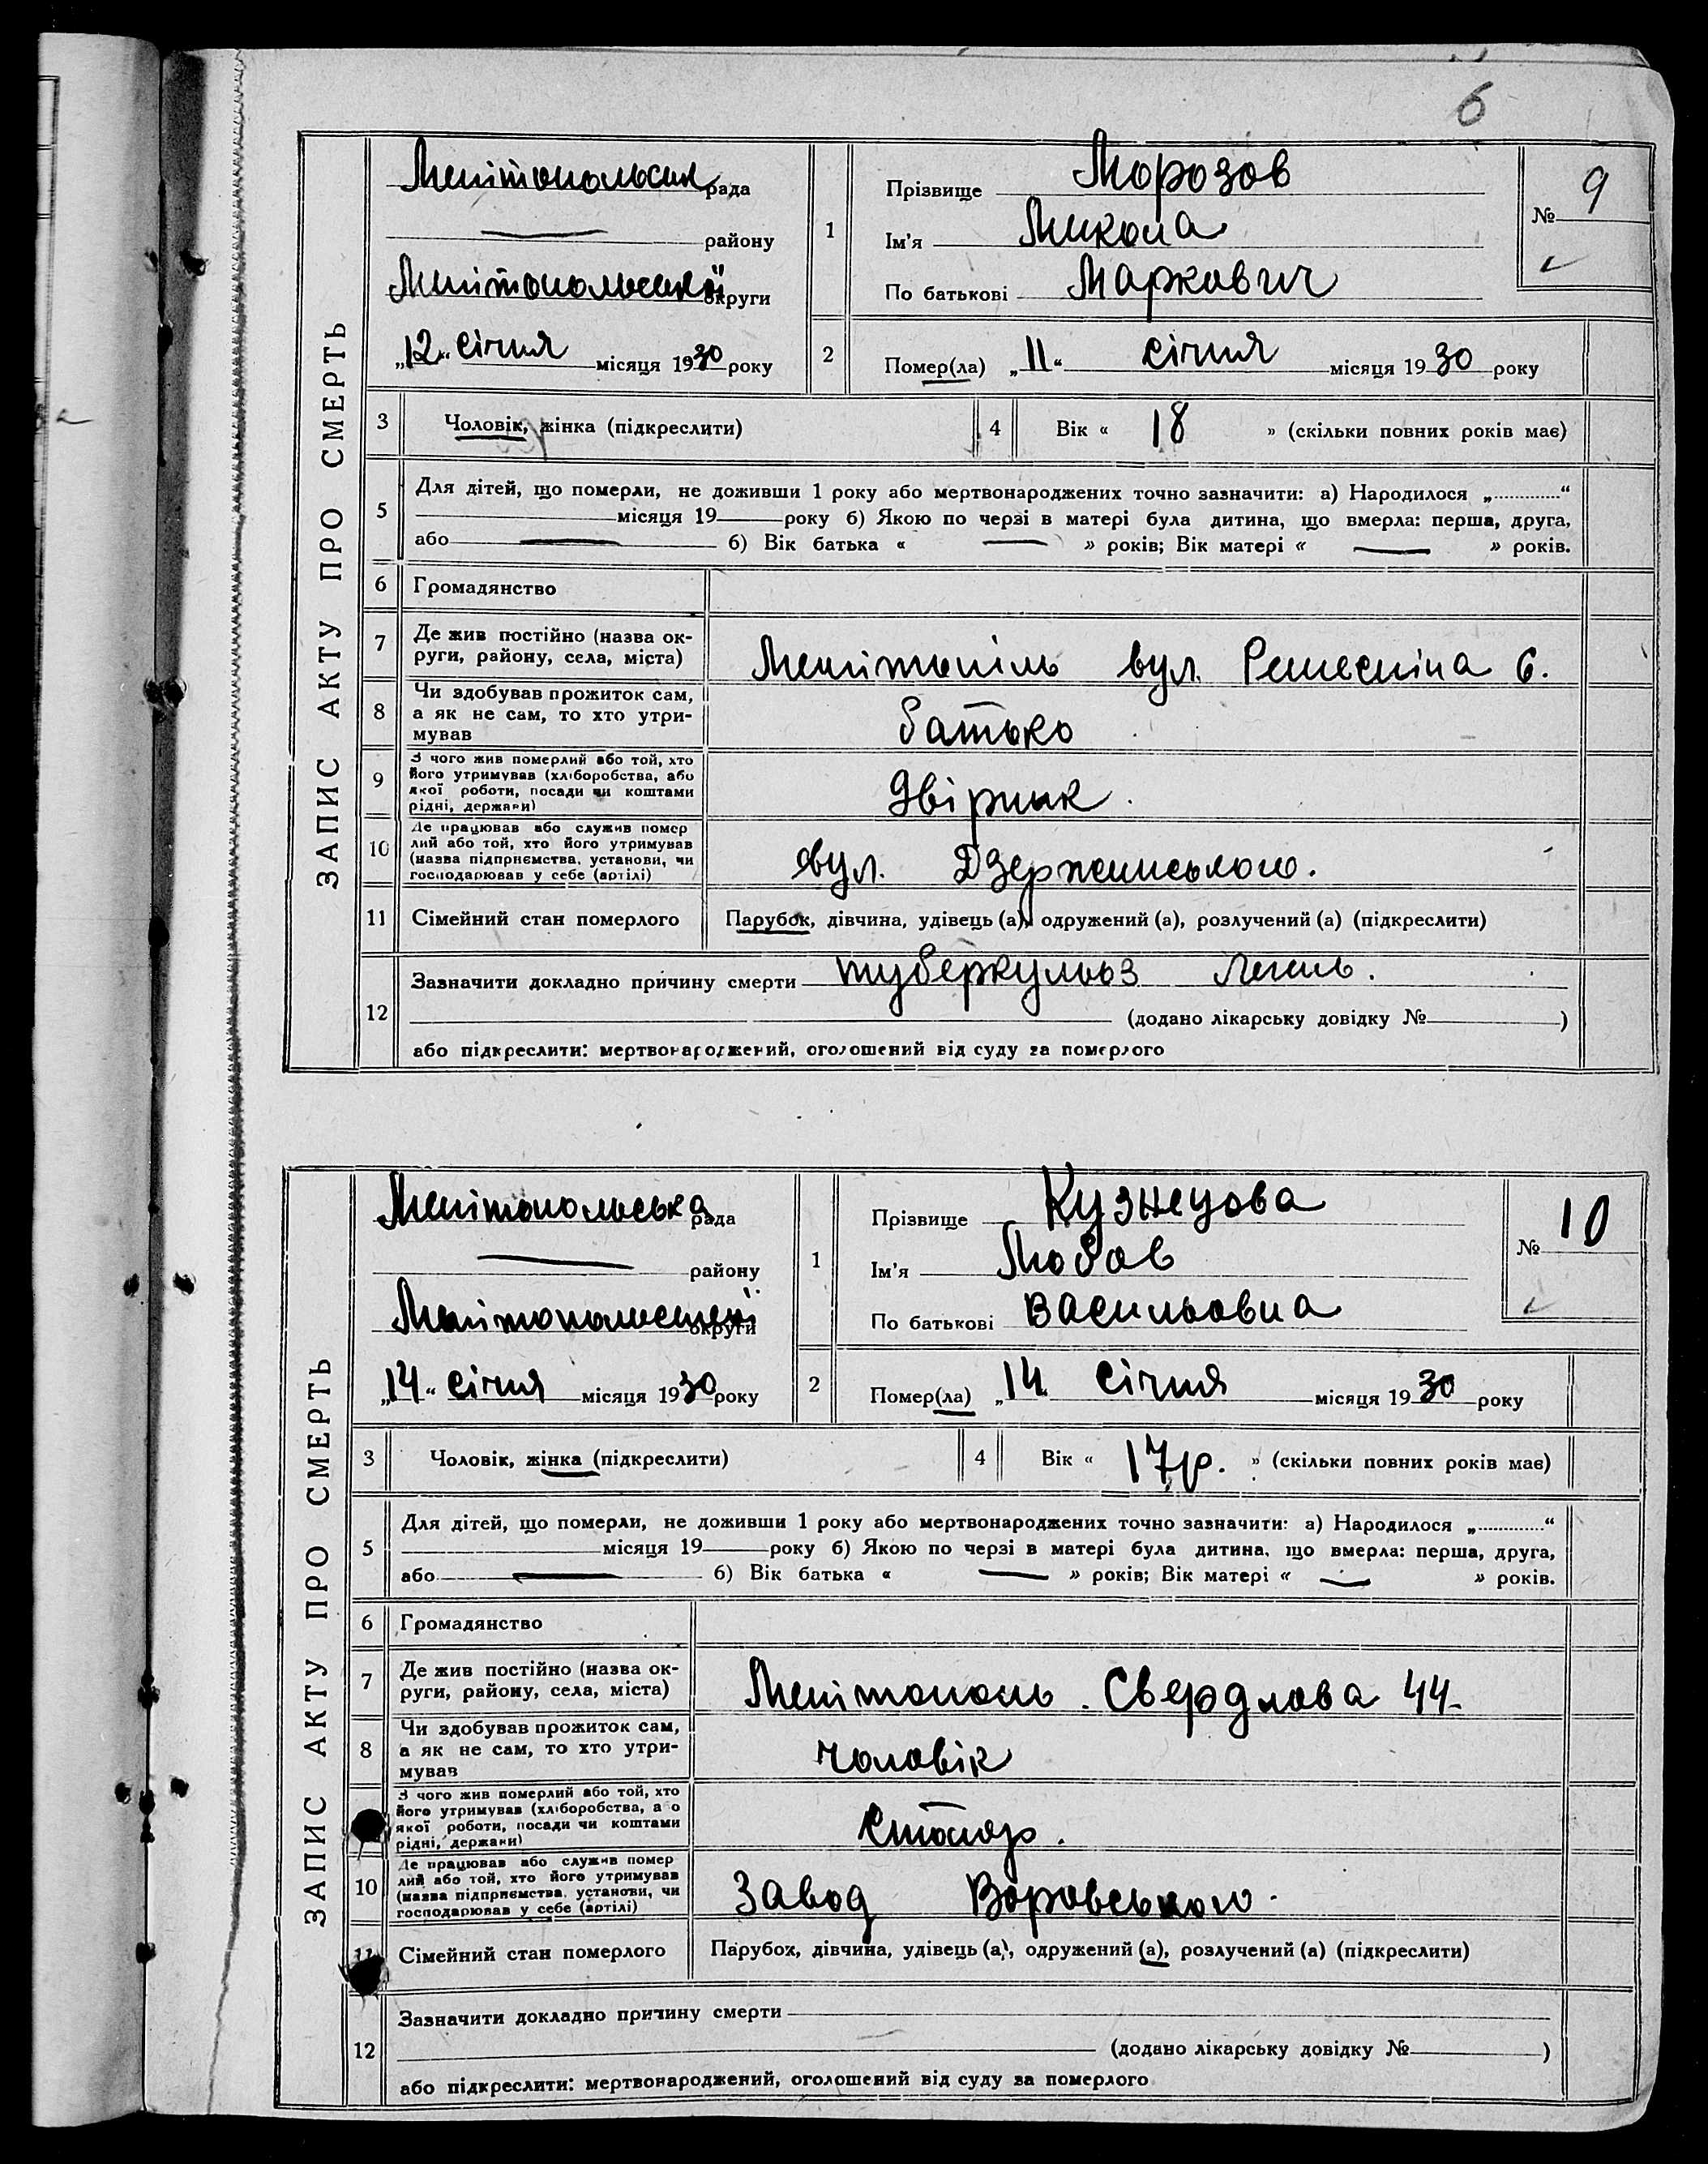 6
ЗАПИС АКТУ ПРО СМЕРТЬ
Мелітопольська рада
району
Мелітопольської округи
„12“ січня місяця 1930 року
1
Прізвище Морозов
Ім'я Микола
По батькові Маркович
№ 9
2
Помер(ла) „11“ січня місяця 1930 року
3 Чоловік, жінка (підкреслити)
4 Вік « 18 » (скільки повних років має)
5 Для дітей, що померли, не доживши 1 року або мертвонароджених точно зазначити: а) Народилося „.............“
місяця 19 року б) Якою по черзі в матері була дитина, що вмерла: перша, друга,
або — б) Вік батька « — » років; Вік матері « — » років.
6 Громадянство
7 Де жив постійно (назва ок-
руги, району, села, міста)
Мелітопіль вул. 6.
8 Чи здобував прожиток сам,
а як не сам, то хто утри-
мував
батько
9 З чого жив померлий або той, хто
його утримував (хліборобства, або
якої роботи, посади чи коштами
рідні, держави)
двірник.
10 Де працював або служив помер
лий або той, хто його утримував
(назва підприємства, установи, чи
господарював у себе (артілі)
вул. Дзержинського.
11 Сімейний стан померлого
Парубок, дівчина, удівець (а), одружений (а), розлучений (а) (підкреслити)
12 Зазначити докладно причину смерти туберкульоз легень.
(додано лікарську довідку № )
або підкреслити: мертвонароджений, оголошений від суду за померлого
ЗАПИС АКТУ ПРО СМЕРТЬ
Мелітопольська рада
району
Мелітопольської округи
„14“ січня місяця 1930 року
1
Прізвище Кузнецова
Ім'я Любов
По батькові Васильовна
№ 10
2
Помер(ла) „14 січня місяця 1930 року
3 Чоловік, жінка (підкреслити)
4 Вік « 17 р. » (скільки повних років має)
5 Для дітей, що померли, не доживши 1 року або мертвонароджених точно зазначити: а) Народилося „.............“
місяця 19 року б) Якою по черзі в матері була дитина, що вмерла: перша, друга,
або — б) Вік батька « — » років; Вік матері « — » років.
6 Громадянство
7 Де жив постійно (назва ок-
руги, району, села, міста)
Мелітополь. Свердлова 44
8 Чи здобував прожиток сам,
а як не сам, то хто утри-
мував
чоловік
З чого жив померлий або той, хто
його утримував (хліборобства, а о
якої роботи, посади чи коштами
рідні, держави)
столяр.
10 Де працював або служив помер
лий або той, хто його утримував
(назва підприємства, установи, чи
господарював у себе (артілі)
завод Воровського.
11 Сімейний стан померлого
Парубок, дівчина, удівець (а), одружений (а), розлучений (а) (підкреслити)
12 Зазначити докладно причину смерти
(додано лікарську довідку № )
або підкреслити: мертвонароджений, оголошений від суду за померлого